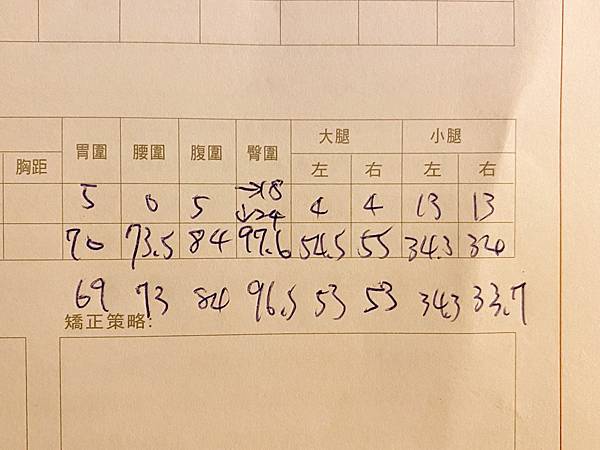 大腿 小腿
胸距 胃圍 腰圍 腹圍 臀圍 左 右 左 右
5 0 5 →18 ↓24 4 4 13 13
70 73.5 84 97.6 54.5 55 34.3
69 73 84 96.5 53 53 34.3 33.7
矯正策略: